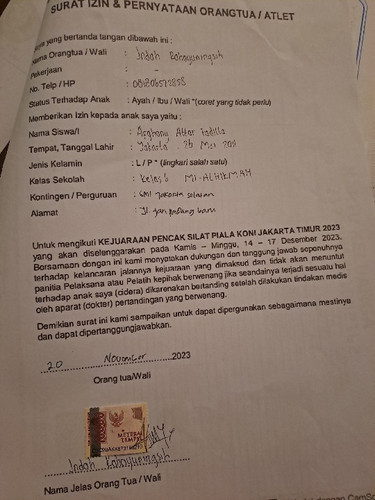 SURAT IZIN & PERNYATAAN ORANGTUA / ATLET
yang bertanda tangan dibawah ini :
Nama Orangtua / Wali : Indah Rahayuningsih
Pekerjaan : -
No. Telp / HP :
Status Terhadap Anak : Ayah / Ibu / Wali *(coret yang tidak perlu)
Memberikan Izin kepada anak saya yaitu :
Nama Siswa/i : Attar Fadilla
Tempat, Tanggal Lahir : Jakarta, 26 Mei 2011
Jenis Kelamin : L / P * (lingkari salah satu)
Kelas Sekolah : Kelas 6 MI-ALHIKMAH
Kontingen / Perguruan : Jakarta Selatan
Alamat : Jl.
Untuk mengikuti KEJUARAAN PENCAK SILAT PIALA KONI JAKARTA TIMUR 2023
yang akan diselenggarakan pada Kamis – Minggu, 14 – 17 Desember 2023.
Bersamaan dengan ini kami menyatakan dukungan dan tanggung jawab sepenuhnya
terhadap kelancaran jalannya kejuaraan yang dimaksud dan tidak akan menuntut
panitia Pelaksana atau Pelatih kepihak berwenang jika seandainya terjadi sesuatu hal
terhadap anak saya (cidera) dikarenakan bertanding setelah dilakukan tindakan medis
oleh aparat (dokter) pertandingan yang berwenang.
Demikian surat ini kami sampaikan untuk dapat dipergunakan sebagaimana mestinya
dan dapat dipertanggungjawabkan.
20 November 2023
Orang tua/Wali
METERAI
TEMPEL
Indah Rahayuningsih
Nama Jelas Orang Tua / Wali